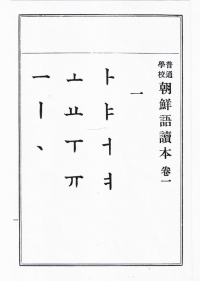 普通
學校 朝鮮語讀本 卷一
一
ㅏ ㅑ ㅓ ㅕ
ㅗ ㅛ ㅜ ㅠ
ㅡ ㅣ ㆍ
一